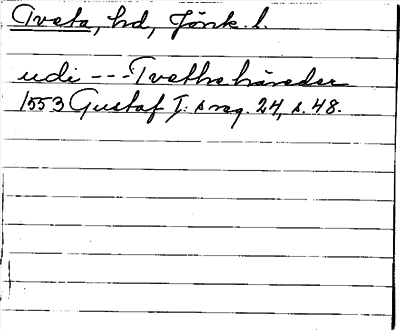 Tveta, hd, Jönk. l.
udi --- Tvethehäreder
1553 Gustaf I: s reg. 24, s. 48.